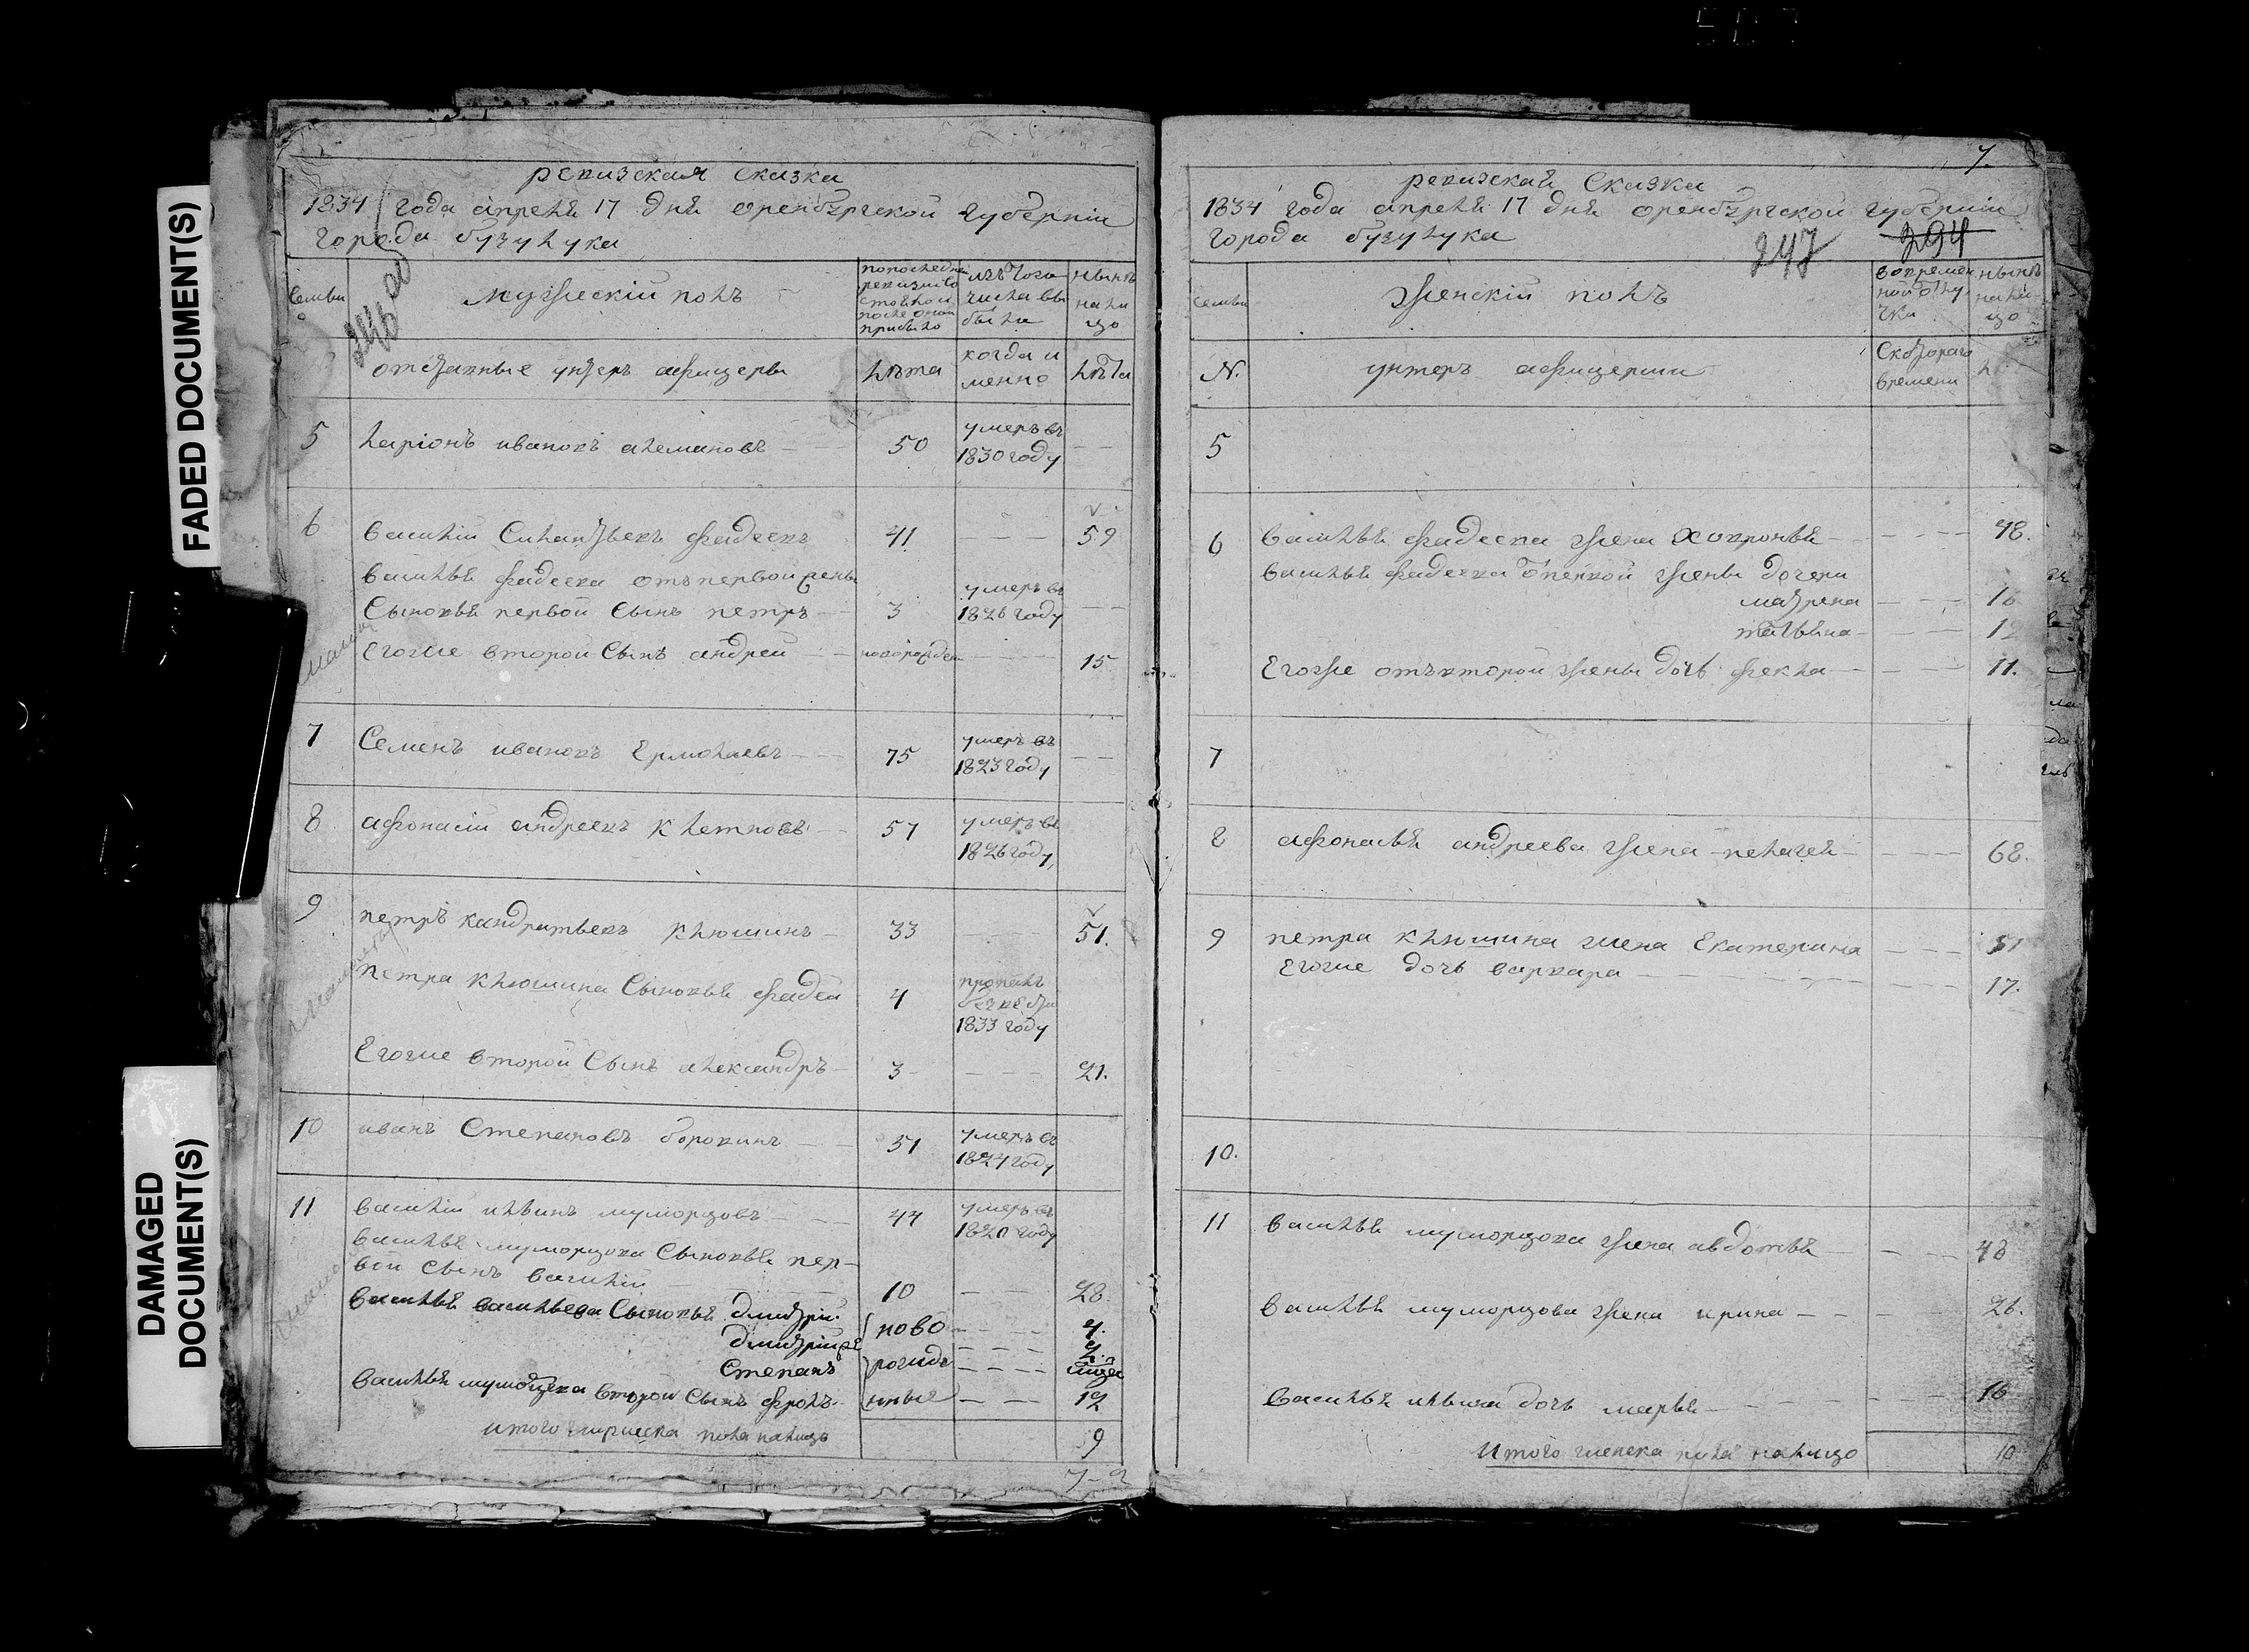 FADED DOCUMENT(S)
DAMAGED DOCUMENT(S)
ревизская сказка
1834 года апреля 17 дня оренбургской губернiи
города бузулука
246 об
Семьи
мужескiй полъ
по последней ревизiи состояло и после оной прибыло
изъ того числа выбыло
ныне на лицо
отставные унтеръ афицеры
лѣта
когда именно
лѣта
5 ларiонъ ивановъ алемановъ 50 умеръ въ 1830 году
6 василiй Силантьевъ фадеевъ 41 59
василья фадеева отъ первой жены
Сыновья первой Сынъ петръ 3 умеръ въ 1826 году
Егоже второй Сынъ андрей новорожден 15
7 Семенъ ивановъ Ермолаевъ 75 умеръ въ 1823 году
8 афонасiй андреевъ клетновъ 57 умеръ въ 1826 году
9 петръ кандратьевъ клюшинъ 33 51.
петра клюшина Сыновья фадей 4 пропалъ без вести 1833 году
Егоже второй Сынъ александръ 3 21.
10 иванъ Степановъ боровинъ 51 умеръ въ 1824 году
11 василiй ильинъ муморцовъ 44 умеръ въ 1820 году
василья муморцова Сыновья пер-
вой Сынъ василiй 10 28.
василья васильева Сыновья дмитрiй. ново 4.
дмитрiй же 2.
Степанъ рожде
василья муморцова второй Сынъ фролъ. нныя 12
итого мужеска пола налицо 9
7.
ревизская Сказка
1834 года апреля 17 дня оренбургской губернiи
города бузулука
247 294
семьи
женскiй полъ
во временной отлучки
ныне на лицо
N.
унтеръ афицерши
Скоторого времени
5
6 василья фадеева жена Ховронья 48.
василья фадеева от первой жены дочери
матрена 16
татьяна 12
Егоже отъ второй жены дочь фекла 11.
7
8 афонасья андреева жена пелагея 68.
9 петра клюшина жена Екатерина 51
Егоже дочь варвара 17.
10.
11 василья муморцова жена авдотья 48
василья муморцова жена ирина 26.
василья ильина дочь марья 16
Итого женска пола налицо 10